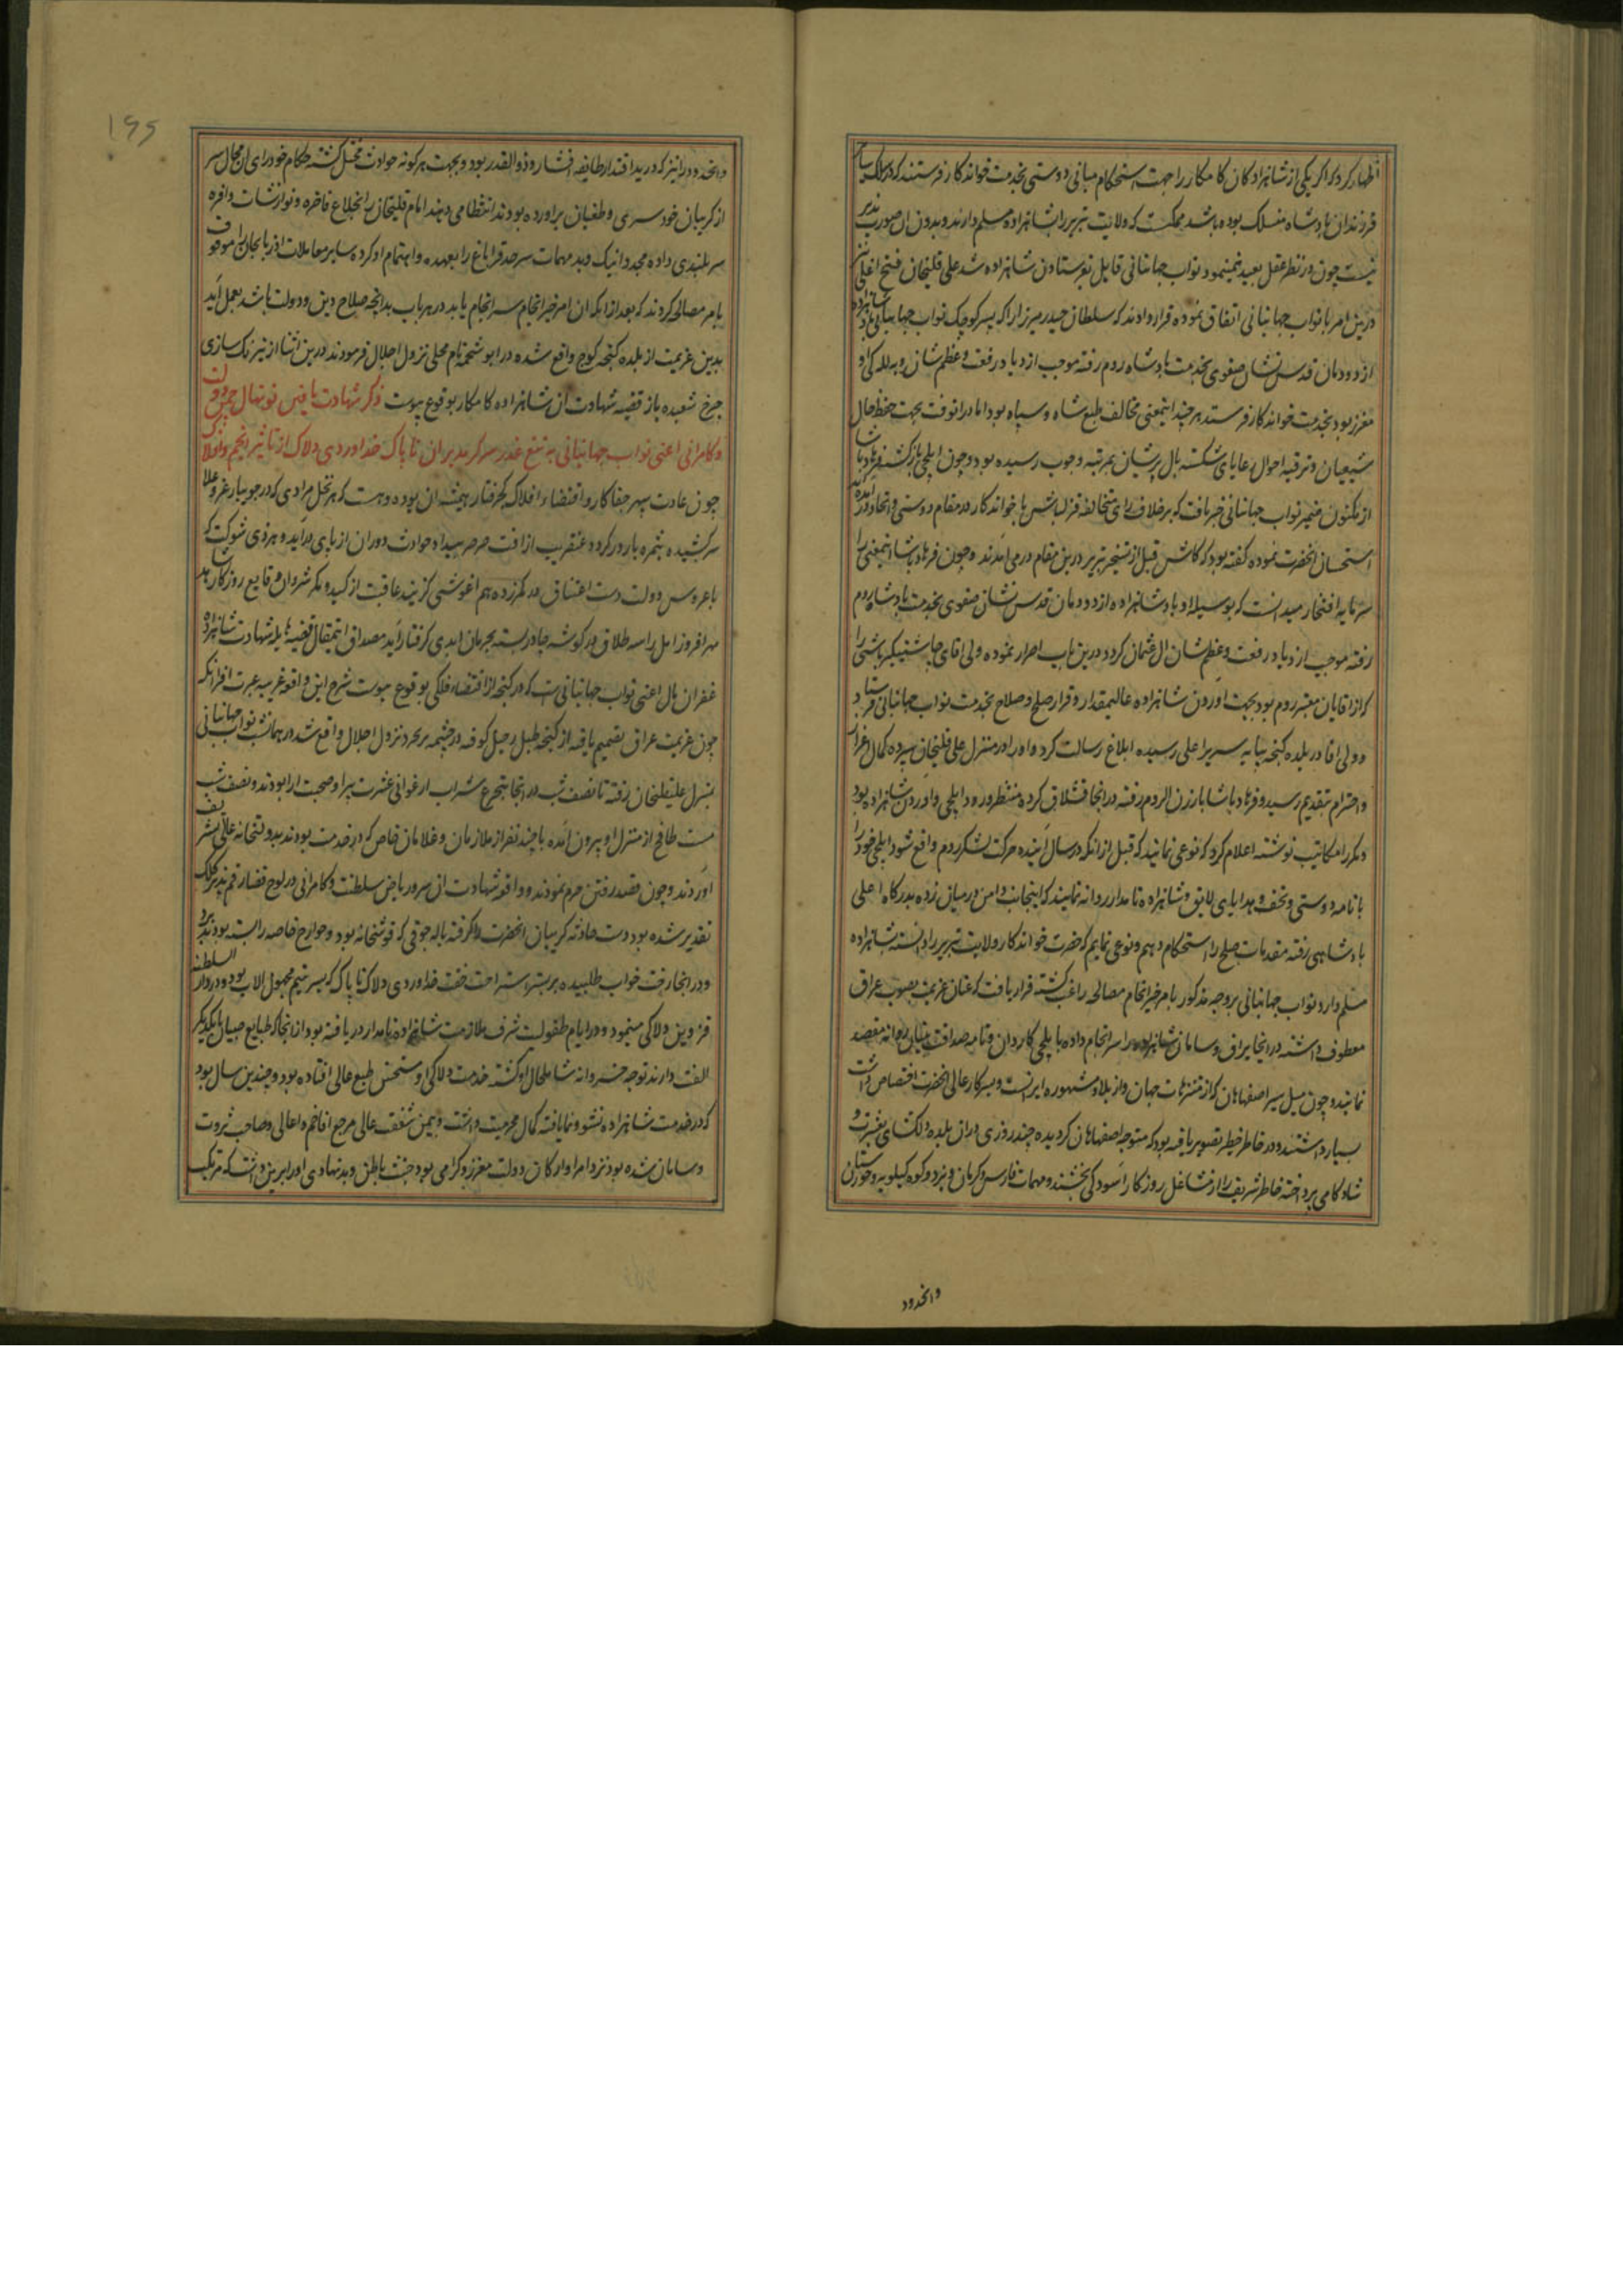 اظهار کرد که اکر یکی از شاهزادکان کامکار را جهت استحکام مبانی دوستی بخدمت خواندکار فرستند که در سلک سایر
فرزندان پادشاه منسلک بوده باشد ممکنست که ولایت تبریز را بشاهزاده مسلم دارند و بدون ان صورت پذیر
نیست چون در نظر عقل بعید نمینمود نواب جهانبانی قایل بفرستادن شاهزاده شد علی قلیخان فتح اغلی نیز
درین امر با نواب جهانبانی اتفاق نموده قرار دادند که سلطان حیدر میرزا را که پسر کوچک نواب جهانبانی بود
از دودمان قدس نشان صفوی بخدمت پادشاه روم رفته موجب ازدیاد رفعت و عظم شان و به للـه کی او
معزز بود بخدمت خواندکار فرستد هر چند اینمعنی مخالف طبع شاه و سپاه بود اما در انوقت بجهت حفظ حال
شیعیان و ترفیه احوال رعایای شکسته بال پریشان بمرتبه وجوب رسیده بود و چون ایلچی بازکشته فرهاد پاشا
از مکنون ضمیر نواب جهانبانی خبر یافت که بر خلاف رای متخالفه قزلباش با خواندکار در مقام دوستی و اتحاد در آمده
استحسان انحضرت نموده کفته بود که کاش قبل از تسخیر تبریز درین مقام در می آمدند و چون فرهاد پاشا اینمعنی را
سرمایه افتخار میدانست که بوسیله او پادشاهزاده از دودمان قدس نشان صفوی بخدمت پادشاه روم
رفته موجب ازدیاد رفعت و عظم شان ال عثمان کردد درین باب اصرار نموده ولی اقای چاشنیکیر باشی را
که از اقایان معتبر روم بود بجهت اوردن شاهزاده عالیمقدار و قرار صلح و صلاح بخدمت نواب جهانبانی فرستاد
و ولی اقا در بلده کنجه بپایه سریر اعلی رسیده ابلاغ رسالت کرد و او را در منزل علی قلیخان سپرده کمال اعزاز
و احترام بتقدیم رسید و فرهاد پاشا بارزن الروم رفته در انجا قشلاق کرده منتظر ورود ایلچی و اوردن شاهزاده بود
و مکررا مکاتیب نوشته اعلام کرد که نوعی نمایند که قبل از انکه در سال آینده حرکت لشکر روم واقع شود ایلچی خود را
با نامه دوستی و تحف و هدایای لایق و شاهزاده نامدار روانه نمایند که اینجانب دامن در میان زده بدرکاه اعلی
پادشاهی رفته مقدمات صلح را استحکام دهم و نوعی نمایم که حضرت خواندکار ولایت تبریز را دانسته بشاهزاده
مسلم دارد نواب جهانبانی بر وجه مذکور بامر خیر انجام مصالحه راغب کشته قرار یافت که عنان عزیمت بصوب عراق
معطوف داشته در اینجا یراق و سامان شاهزاده را سرانجام داده با ایلچی کاردان و نامه صداقت بنیان روانه مقصد
نمایند و چون میل سیر اصفهان که از متنزهات جهان و از بلاد مشهوره ایرانست و بسرکار عالی انحضرت اختصاص داشت
بسیار داشتند و در خاطر خطیر تصویر یافته بود که متوجه اصفهان کردیده چند روزی در ان بلده دلکشای بعشرت و
شادکامی پرداخته خاطر شریف را از مشاغل روزکار آسودکی بخشند و مهمات فارس و کرمان و یزد و کوه کیلویه و خوزستان
وانحدود
۱۶۵
و انحدود را نیز که در ید اقتدار طایفه افشار و ذوالقدر بود و بجهت هر کونه حوادث مختل کشته حکام خود رای ان محال سر
از کریبان خود سری و طغیان براورده بودند انتظامی دهند امام قلیخان را بخلاع فاخره و نوازشات وافره
سر بلندی داده مجددا نیک و بد مهمات سرحد قراباغ را بعهده و اهتمام او کرده سایر معاملات اذربایجان را موقوف
بامر مصالحه کردند که بعد از انکه ان امر خیر انجام سرانجام یابد در هر باب بدانچه صلاح دین و دولت باشد بعمل آید
بدین عزیمت از بلده کنجه کوچ واقع شده در ابوشحمه نام محلی نزول اجلال فرمودند درین اثنا از نیرنک سازی
چرخ شعبده باز قضیه شهادت ان شاهزاده کامکار بوقوع پیوست ذکر شهادت یافتن نونهال چمن دولت
و کامرانی اعنی نواب جهانبانی به تیغ غدر سر کریده بران ناپاک خداوردی دلاک از تاثیر انجم و افلاک
چون عادت سپهر جفاکار و اقتضاء افلاک کجرفتار همیشه ان بوده و هست که هر نخل مرادی که در جویبار عز و علا
سر کشیده بثمره بارور کردد عنقریب از افت صرصر بیداد حوادث دوران از پای درآید و هر ذی شوکت که
با عروس دولت دست اعتناق در کمر زده هم اغوشی کزیند عاقبت از کید و مکر شروان وقایع روزکار بد
مهر افروز امل را سه طلاق در کوشه چادر بسته بحرمان ابدی کرفتار آید مصداق اینمقال قضیه هایله شهادت شاهزاده
غفران مال اعنی نواب جهانبانی است که در کنجه از اقتضاء فلکی بوقوع پیوست شرح این واقعه غریبه عبرت افزا انکه
چون عزیمت عراق تصمیم یافته از کنجه طبل رحیل کوفته در چشمه برحرد نزول اجلال واقع شد در همان شب نواب جهانبانی
بمنزل علیقلیخان رفته تا نصف شب در انجا بتجرع شراب ارغوانی عشرت پیرا و صحبت ارا بودند و نصف شب
مست طافح از منزل او بیرون آمده با چند نفر از ملازمان و غلامان خاص که در خدمت بودند بدولتخانه عالی تشریف
آوردند و چون قصد رفتن حرم نمودند و واقعه شهادت ان سرو ریاض سلطنت و کامرانی در لوح قضا رقم پذیر کلک
تقدیر شده بود دست حادثه کریبان انحضرت را کرفته باله جوقی که قوشخانه بود و جوارح خاصه را بسته بودند برد
و در انجا رخت خواب طلبیده بر بستر استراحت خفت خداوردی دلاک ناپاک که پسر یتیم مجهول الاب بود و در دار السلطنه
قزوین دلاکی مینمود و در ایام طفولیت شرف ملازمت شاهزاده نامدار دریافته بود از انجا که طبایع صبیان با یکدیکر
الفت دارند توجه خسروانه شامل حال او کشته خدمت دلاکی او مستحسن طبع عالی افتاده بود و چندین سال بود
که در خدمت شاهزاده نشو و نما یافته کمال محرمیت داشت و بیمن شفقت عالی مرجع افاخم و اعالی و صاحب ثروت
و سامان شده بود نزد امرا و ارکان دولت معزز و کرامی بود خبث باطن و بد نهادی او را برین داشت که مرتکب